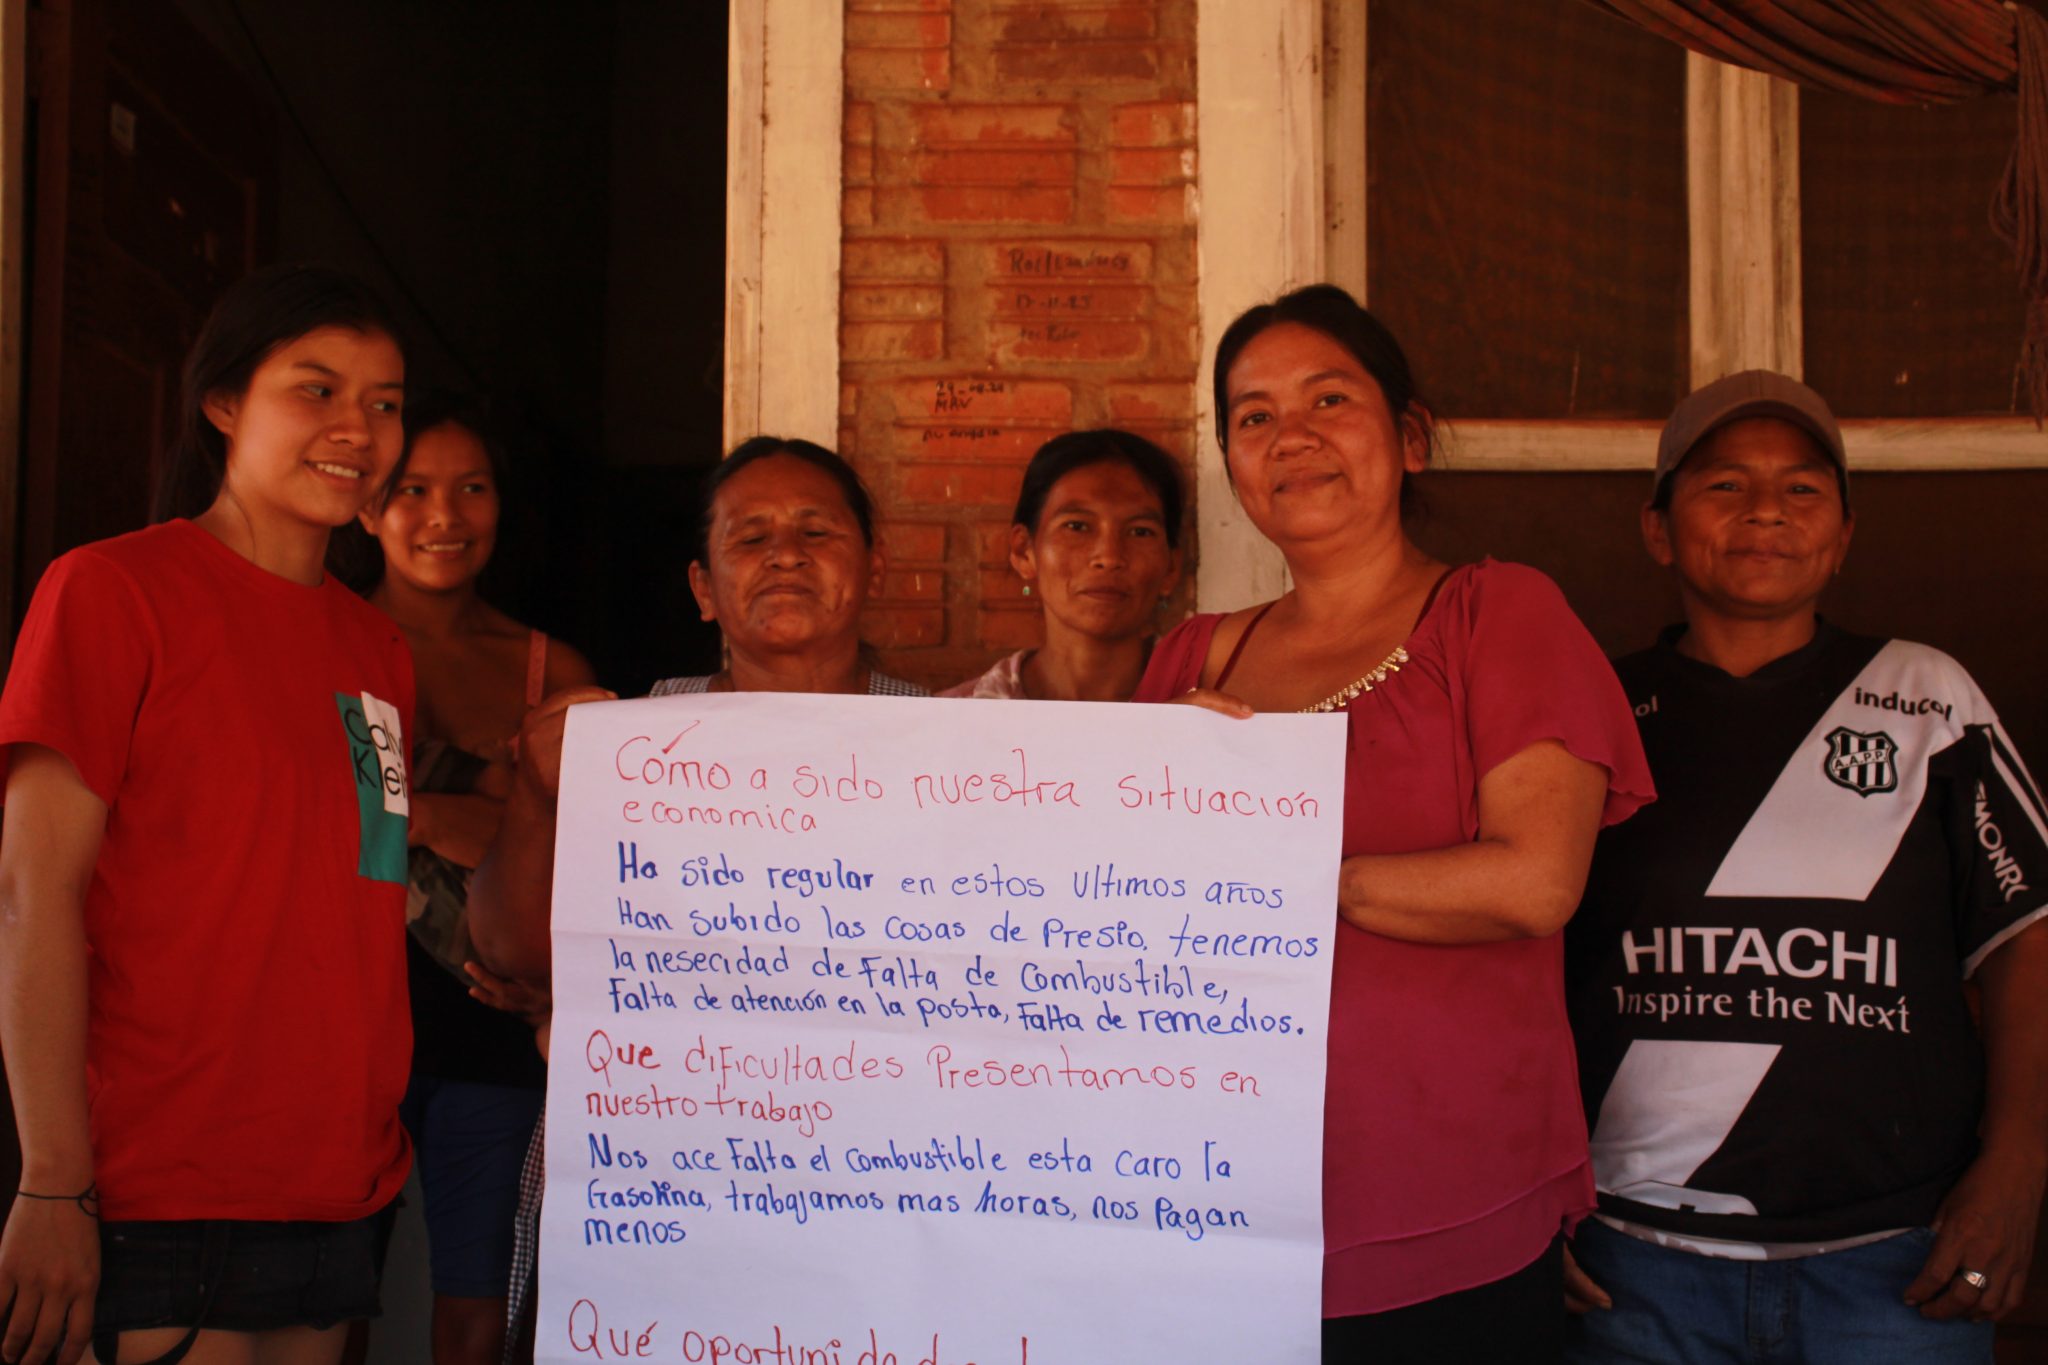 29-08-24
MRV
Calv
Klein
inducol
ol
A.A.P.P.
EMONRO
HITACHI
Inspire the Next
Cómo a sido nuestra situación
economica
Ha sido regular en estos ultimos años
Han subido las cosas de Presio, tenemos
la nesecidad de Falta de Combustible,
Falta de atención en la posta, Falta de remedios.
Que dificultades Presentamos en
nuestro trabajo
Nos ace Falta el combustible esta caro la
Gasolina, trabajamos mas horas, nos Pagan
menos
Qué oportunidad